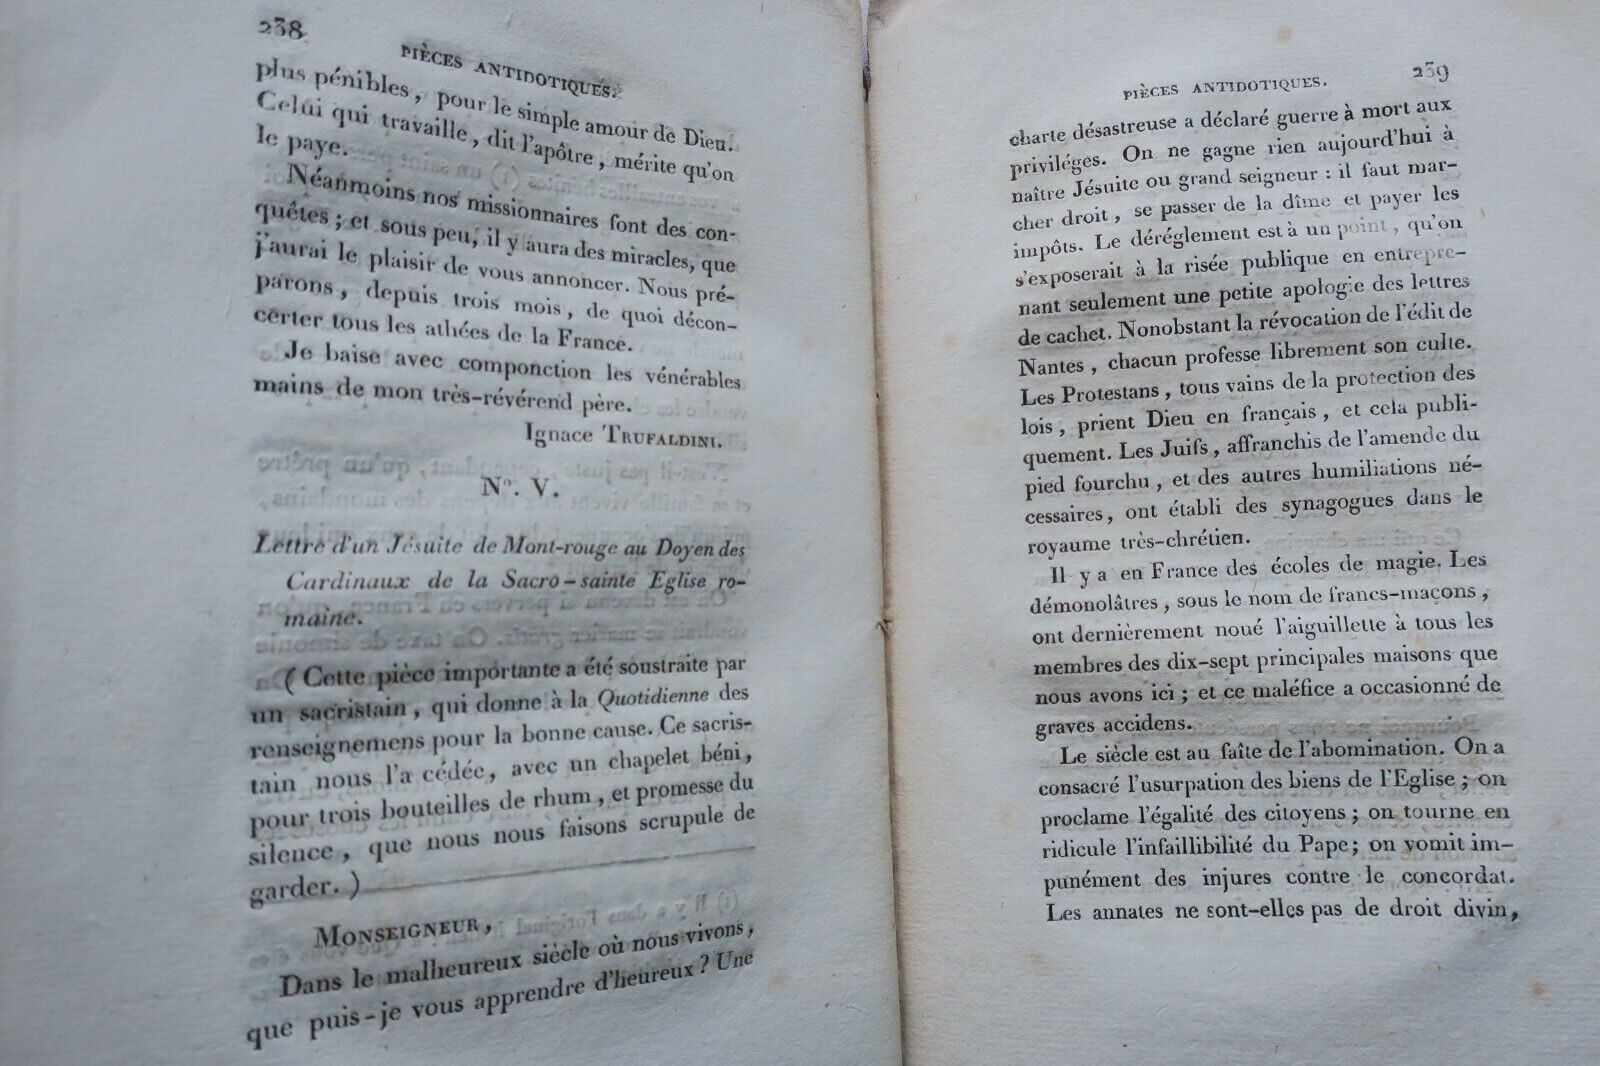 238
PIÈCES ANTIDOTIQUES.
plus pénibles, pour le simple amour de Dieu.
Celui qui travaille, dit l'apôtre, mérite qu'on
le paye.
Néanmoins nos missionnaires font des con-
quêtes; et sous peu, il y aura des miracles, que
j'aurai le plaisir de vous annoncer. Nous pré-
parons, depuis trois mois, de quoi décon-
certer tous les athées de la France.
Je baise avec componction les vénérables
mains de mon très-révérend père.
Ignace TRUFALDINI.
N°. V.
Lettre d'un Jésuite de Mont-rouge au Doyen des
Cardinaux de la Sacro-sainte Eglise ro-
maine.
(Cette pièce importante a été soustraite par
un sacristain, qui donne à la Quotidienne des
renseignemens pour la bonne cause. Ce sacris-
tain nous l'a cédée, avec un chapelet béni,
pour trois bouteilles de rhum, et promesse du
silence, que nous nous faisons scrupule de
garder.)
MONSEIGNEUR,
Dans le malheureux siècle où nous vivons,
que puis-je vous apprendre d'heureux? Une
PIÈCES ANTIDOTIQUES. 239
charte désastreuse a déclaré guerre à mort aux
priviléges. On ne gagne rien aujourd'hui à
naître Jésuite ou grand seigneur : il faut mar-
cher droit, se passer de la dîme et payer les
impôts. Le déréglement est à un point, qu'on
s'exposerait à la risée publique en entrepre-
nant seulement une petite apologie des lettres
de cachet. Nonobstant la révocation de l'édit de
Nantes, chacun professe librement son culte.
Les Protestans, tous vains de la protection des
lois, prient Dieu en français, et cela publi-
quement. Les Juifs, affranchis de l'amende du
pied fourchu, et des autres humiliations né-
cessaires, ont établi des synagogues dans le
royaume très-chrétien.
Il y a en France des écoles de magie. Les
démonolâtres, sous le nom de francs-maçons,
ont dernièrement noué l'aiguillette à tous les
membres des dix-sept principales maisons que
nous avons ici; et ce maléfice a occasionné de
graves accidens.
Le siècle est au faîte de l'abomination. On a
consacré l'usurpation des biens de l'Eglise; on
proclame l'égalité des citoyens; on tourne en
ridicule l'infaillibilité du Pape; on vomit im-
punément des injures contre le concordat.
Les annates ne sont-elles pas de droit divin,